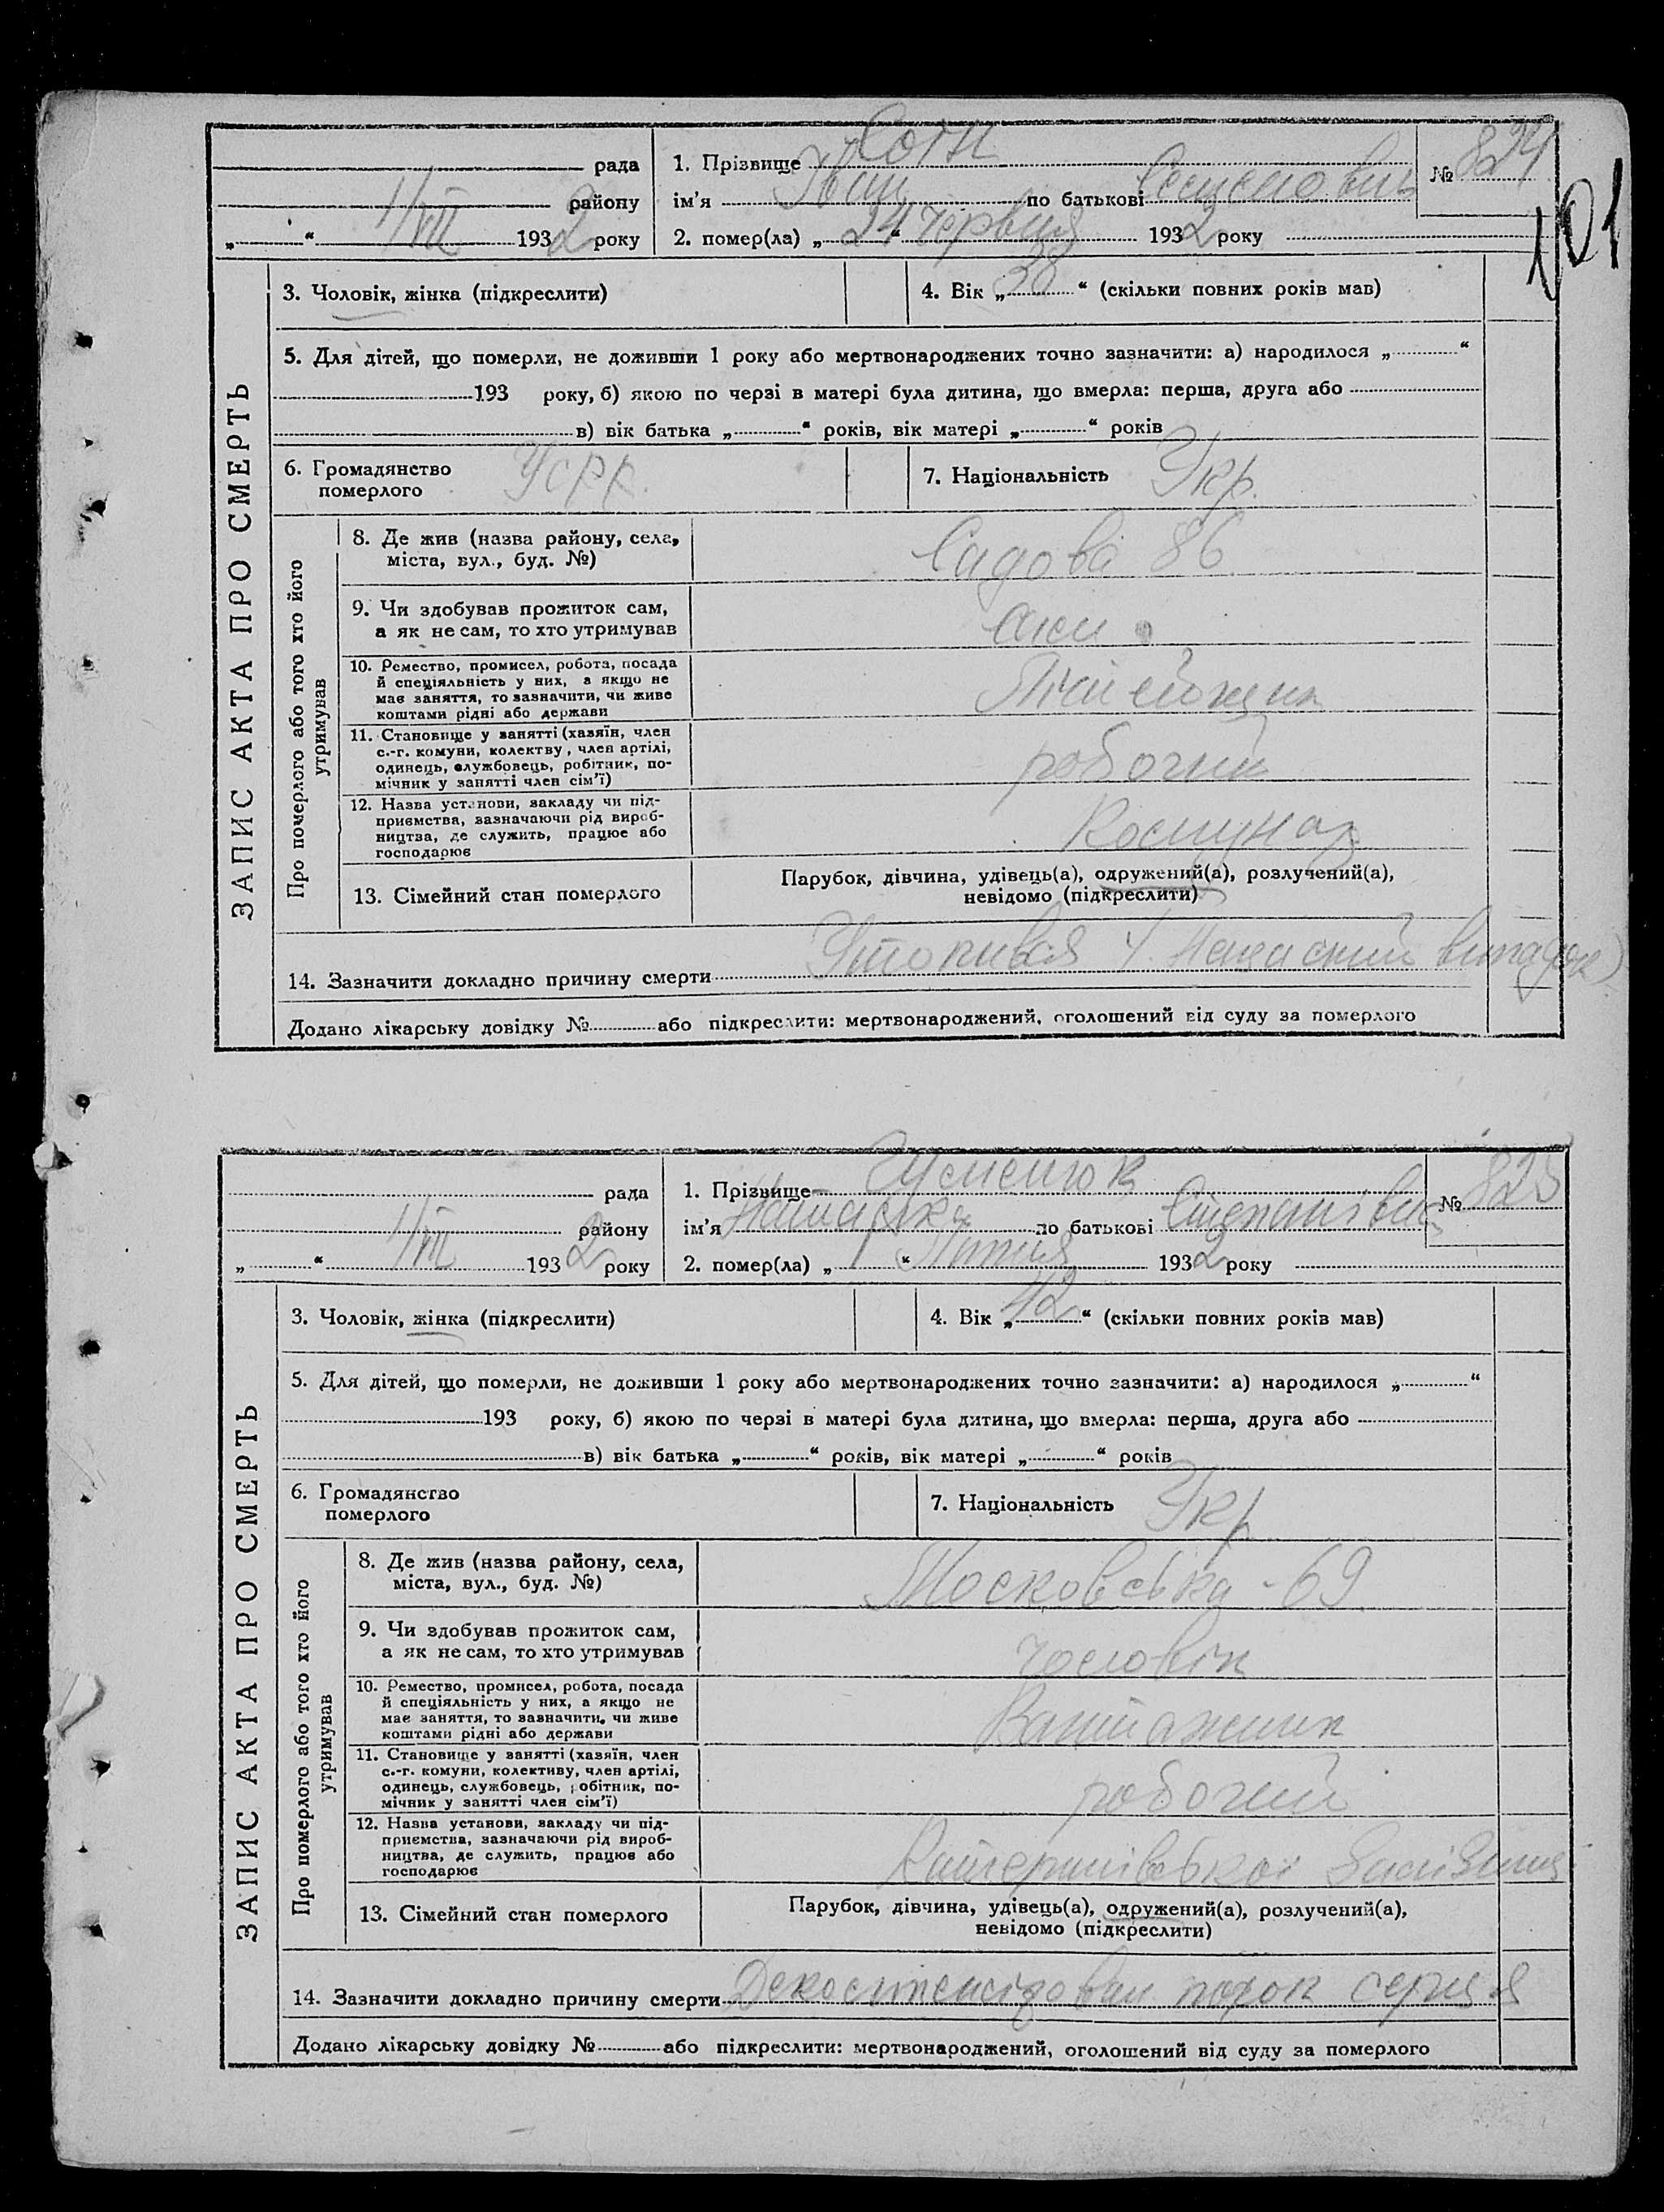 рада 1. Прізвище № 824
району ім’я Іван по батькові Семенович 101
„ “ 1/VII 1932 року 2. помер(ла) „24“ червня 1932 року
ЗАПИС АКТА ПРО СМЕРТЬ
3. Чоловік, жінка (підкреслити) 4. Вік „38“ (скільки повних років мав)
5. Для дітей, що померли, не доживши 1 року або мертвонароджених точно зазначити: а) народилося „ “
193 року, б) якою по черзі в матері була дитина, що вмерла: перша, друга або
в) вік батька „ “ років, вік матері „ “ років
6. Громадянство 7. Національність Укр.
померлого УСРР.
Про померлого або того хто його
утримував
8. Де жив (назва району, села,
міста, вул., буд. №) Садова 86
9. Чи здобував прожиток сам,
а як не сам, то хто утримував сам
10. Ремество, промисел, робота, посада
й спеціяльність у них, а якщо не
має заняття, то зазначити, чи живе
коштами рідні або держави
11. Становище у занятті (хазяїн, член
с.-г. комуни, колектву, член артілі,
одинець, службовець, робітник, по-
мічник у занятті член сім’ї) робочий
12. Назва установи, закладу чи під-
приємства, зазначаючи рід вироб-
ництва, де служить, працює або
господарює Комунхоз
13. Сімейний стан померлого Парубок, дівчина, удівець(а), одружений(а), розлучений(а),
невідомо (підкреслити)
14. Зазначити докладно причину смерти Утопився (Нещасний випадок)
Додано лікарську довідку № або підкреслити: мертвонароджений, оголошений від суду за померлого
рада 1. Прізвище № 825
району ім’я по батькові Степанівна
„ “ 1/VII 1932 року 2. помер(ла) „1“ Липня 1932 року
ЗАПИС АКТА ПРО СМЕРТЬ
3. Чоловік, жінка (підкреслити) 4. Вік „42“ (скільки повних років мав)
5. Для дітей, що померли, не доживши 1 року або мертвонароджених точно зазначити: а) народилося „ “
193 року, б) якою по черзі в матері була дитина, що вмерла: перша, друга або
в) вік батька „ “ років, вік матері „ “ років
6. Громадянство 7. Національність Укр
померлого
Про померлого або того хто його
утримував
8. Де жив (назва району, села,
міста, вул., буд. №) Московська - 69
9. Чи здобував прожиток сам,
а як не сам, то хто утримував чоловік
10. Ремество, промисел, робота, посада
й спеціяльність у них, а якщо не
має заняття, то зазначити, чи живе
коштами рідні або держави Вантажник
11. Становище у занятті (хазяїн, член
с.-г. комуни, колективу, член артілі,
одинець, службовець, робітник, по-
мічник у занятті член сім’ї) робочий
12. Назва установи, закладу чи під-
приємства, зазначаючи рід вироб-
ництва, де служить, працює або
господарює Катеринівської Залізниці
13. Сімейний стан померлого Парубок, дівчина, удівець(а), одружений(а), розлучений(а),
невідомо (підкреслити)
14. Зазначити докладно причину смерти порок серця
Додано лікарську довідку № або підкреслити: мертвонароджений, оголошений від суду за померлого